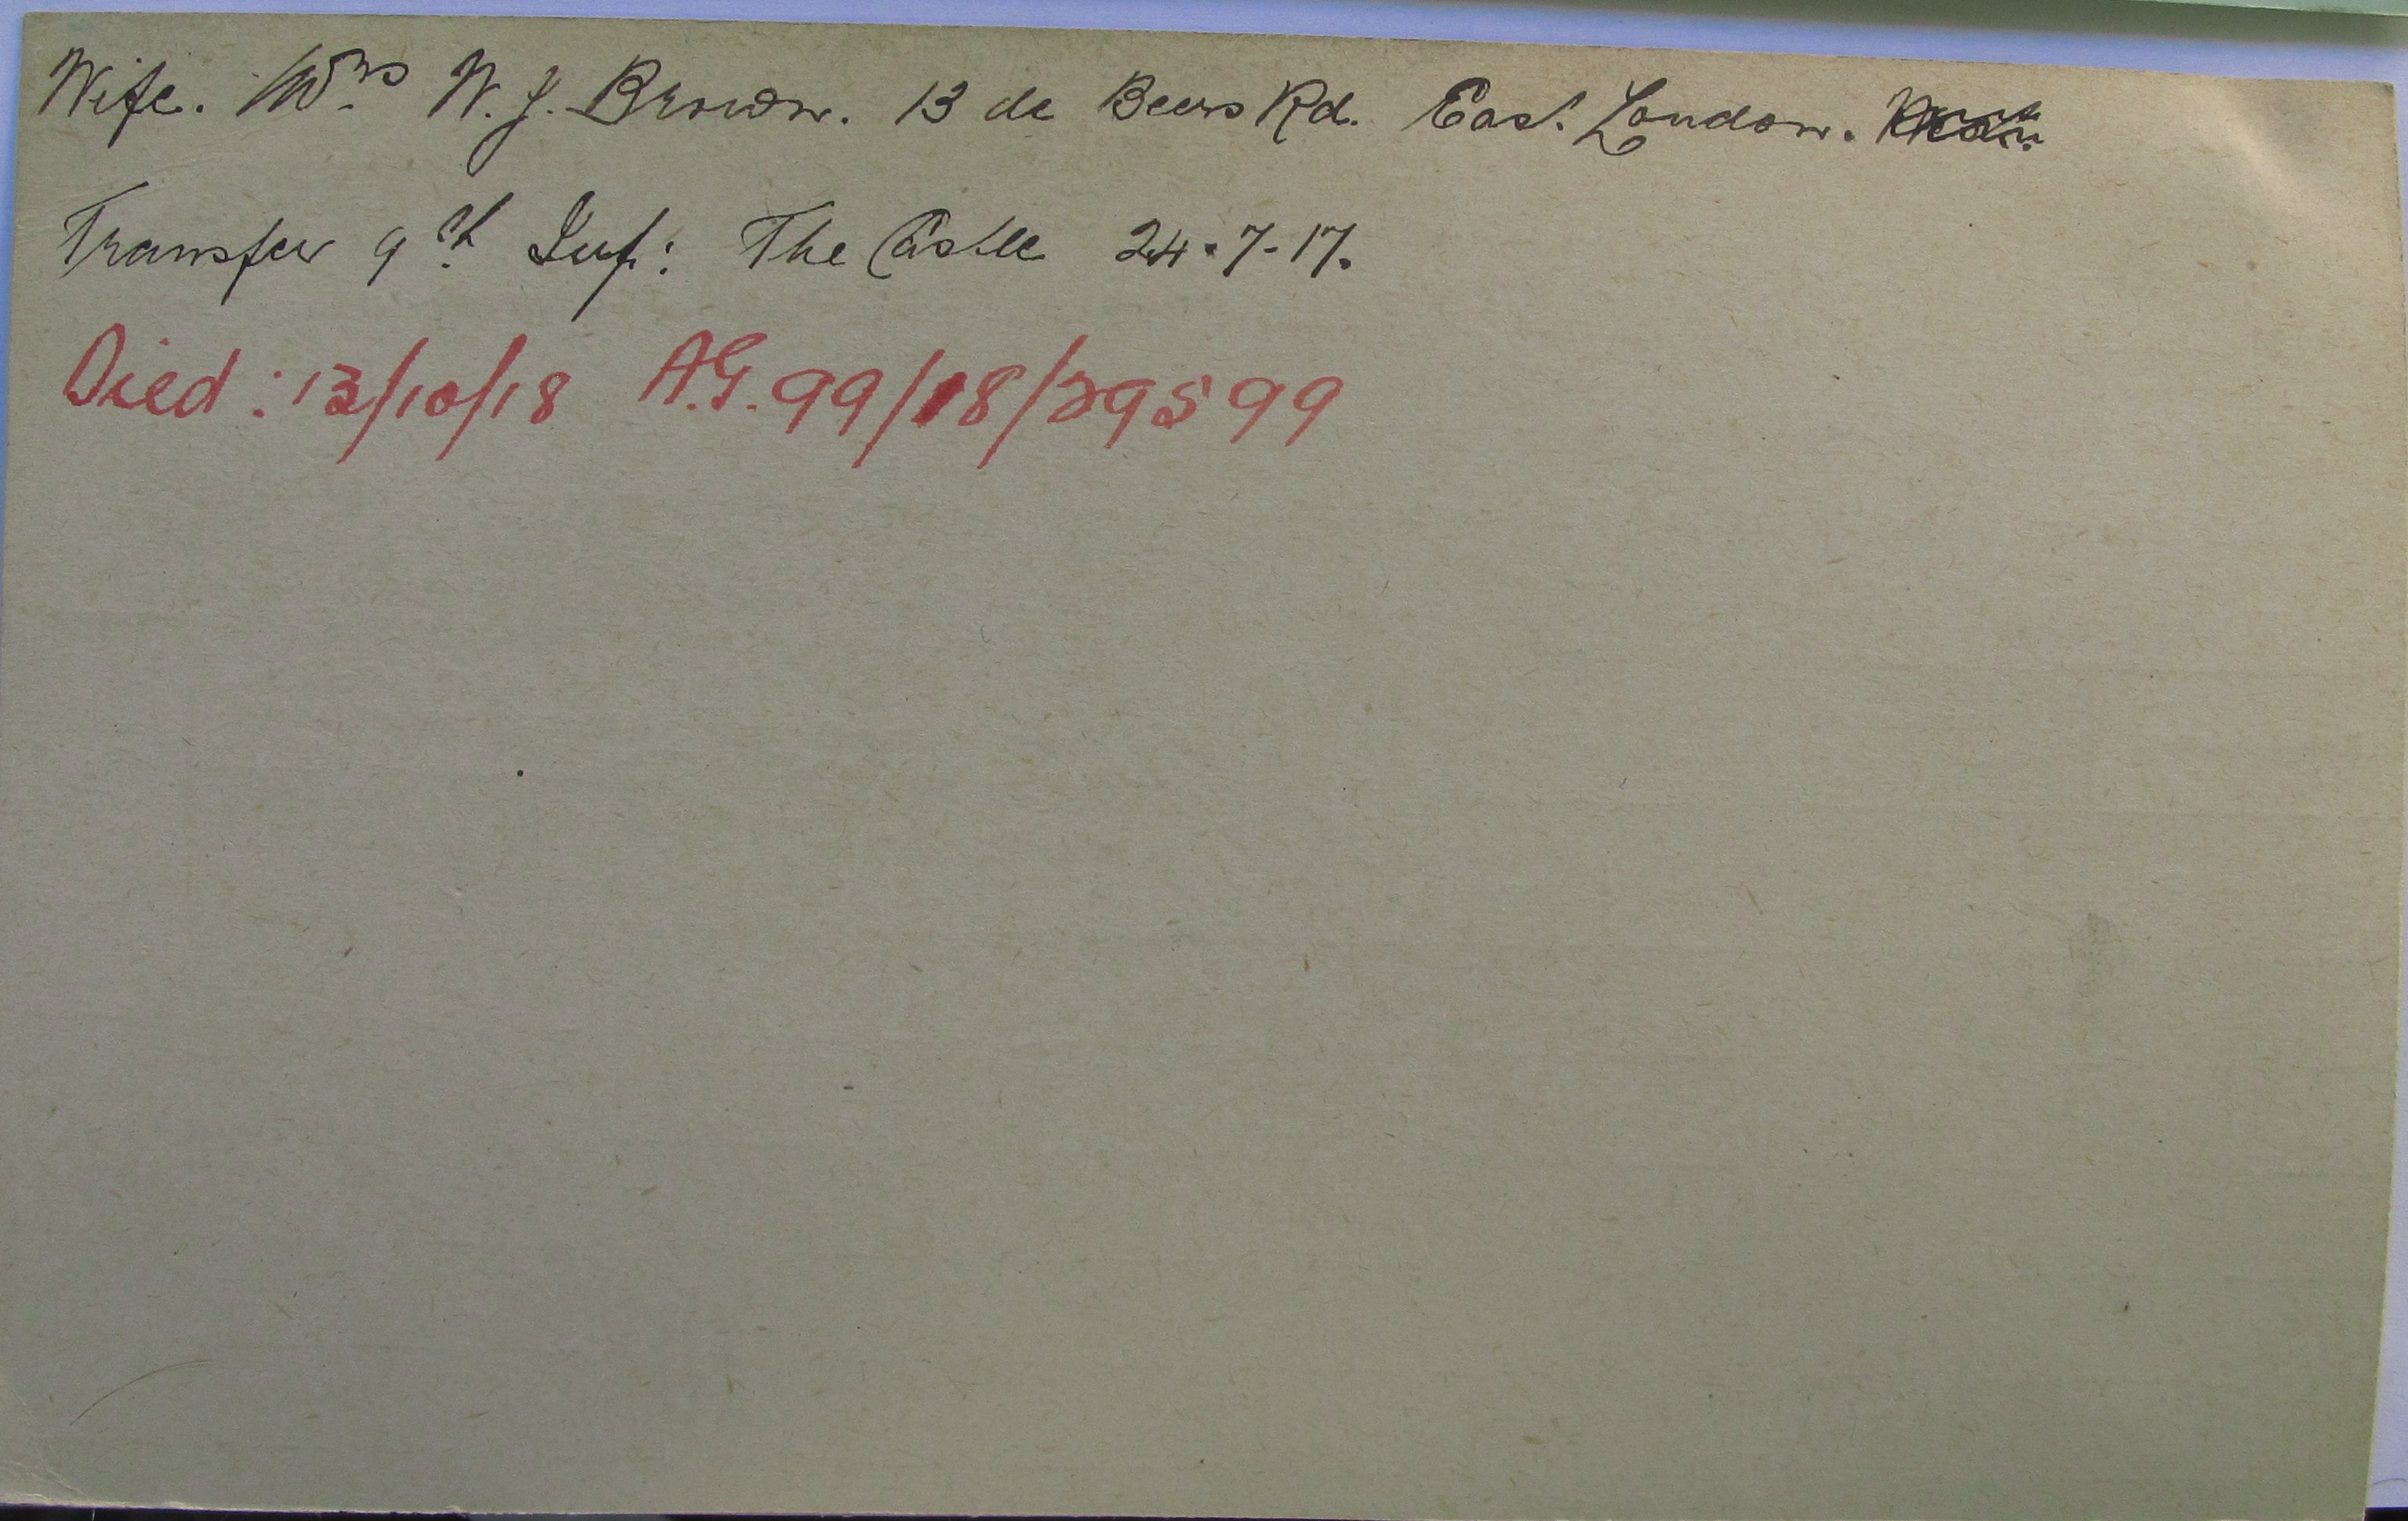 Wife. Mrs W. J. Brown. 13 de Beers Rd. East London.
Transfer 9th Inf: The Castle 24-7-17.
Died: 13/10/18 A.G. 99/18/29599